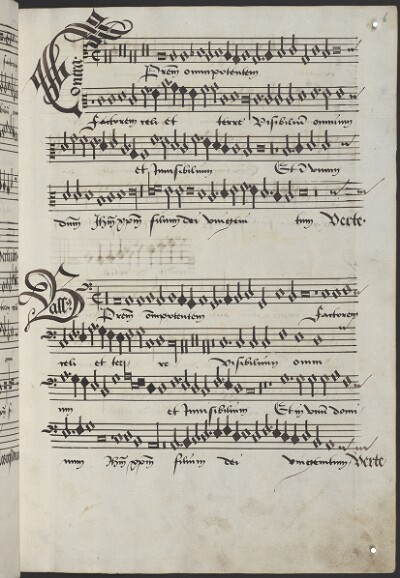 Contra
Prem omnipotentem
Factorem celi et terre Visibiliū omnium
et Invisibilium Et ī vnum
dum Ihm xpm filium dei vnigeni tum Verte.
Bass9
Prem omipotentem Factorem
celi et ter re Visibilium omni
um et Invisibilium Et in vnū domi
num Ihm xpm filium dei vnigenitum Verte